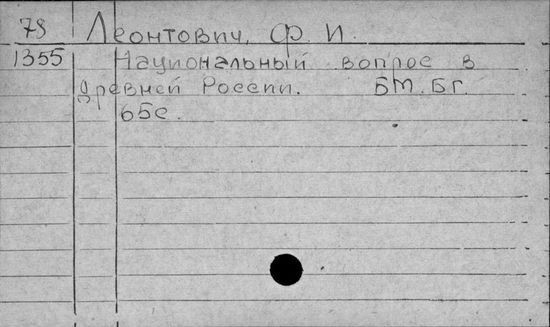 78 Леонтович, Ф. И.
1355 Национальный вопрос в
древней России. БМ. БГ.
65с.